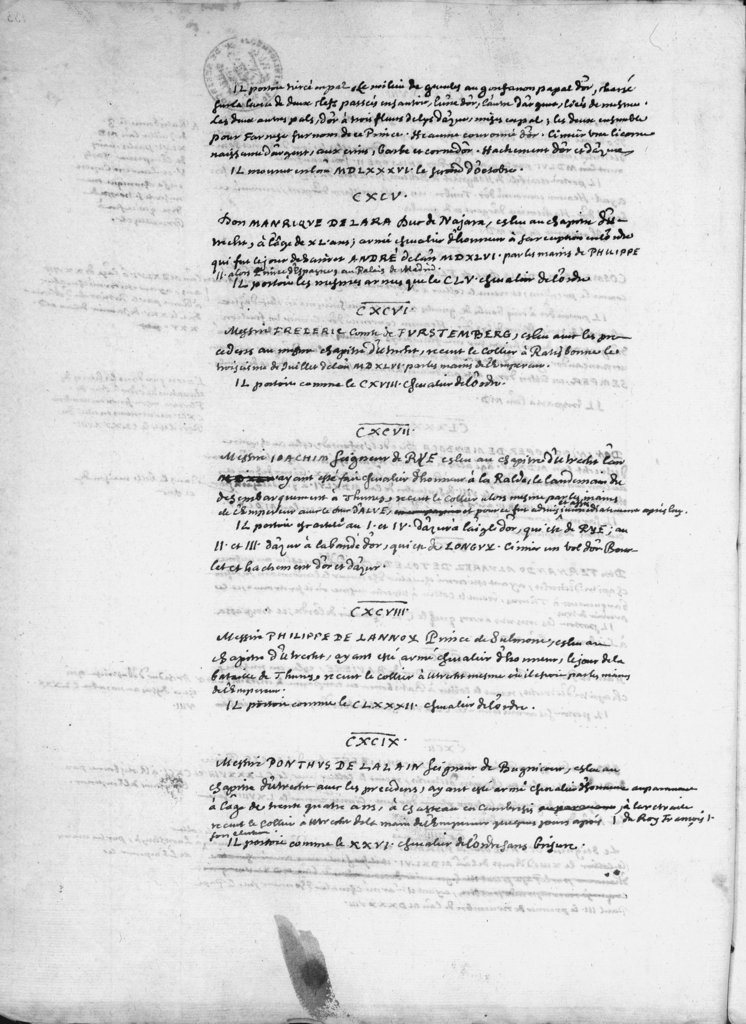 IL portoit tiercé en pal. le milieu de gueules au gonfanon papal d'or, chargé
sur la lance de deux clefs passées en sautoir, l'une d'or, l'autre d'argent, liées de mesme.
Les deux autres pals, d'or à trois fleurs de lys d'azur, mises en pal; les deux ensemble
pour Farnese surnom de ce Prince. Heaume couronné d'or. Cimier une licorne
naissante d'argent, aux crins, barbe et corne d'or. Hachement d'or et d'azur.
IL mourut en l'an MDLXXXVI. le second d'octobre.
CXCV.
Don MANRIQUE DE LARA Duc de Najara, esleu au chapitre d'U-
trecht, à l'âge de XL ans; armé chevalier d'honneur à sa reception en l'ordre
qui fut le jour de saint ANDRÉ de l'an MDXLVI. par les mains de PHILIPPE
II. alors Prince d'Espagnes, au Palais de Madrid.
IL portoit les mesmes armes que le CLV. chevalier de l'ordre
CXCVI.
Messire FREDERIC Comte de FURSTEMBERG, esleu avec les pre-
cedens au mesme chapitre d'Utrecht, receut le Collier à Ratisbonne le
troisiesme de Juillet de l'an MDXLVI. par les mains de l'Empereur.
IL portoit comme le CXVIII. chevalier de l'ordre.
CXCVII.
Messire IOACHIM seigneur de RYE esleu au chapitre d'Utrecht l'an
ayant esté fait chevalier d'honneur à la Rade, le landemain du
desembarquement à Thunes, receut le Collier alors mesme par les mains
de l'Empereur avec le duc d'ALVE, et pour ce fut admis immediatement apres luy.
IL portoit escartelé au I. et IV. d'azur à l'aigle d'or, qui est de RYE; au
II. et III. d'azur à la bande d'or, qui est de LONGVY. Cimier un vol d'or. Bour-
let et hachement d'or et d'azur.
CXCVIII.
Messire PHILIPPE DE LANNOY Prince de Sulmone, esleu au
chapitre d'Utrecht, ayant esté armé chevalier d'honneur, le jour de la
bataille de Thunes, receut le collier à Utrecht mesme où il estoit par les mains
de l'Empereur.
IL portoit comme le CLXXXII. chevalier de l'ordre.
CXCIX.
Messire PONTHUS DE LALAIN seigneur de Bugnicour, esleu au
chapitre d'Utrecht avec les precedens, ayant esté armé chevalier d'honneur auparavant
à l'âge de trente quatre ans, à Chasteau en Cambresis, à la retraite
du Roy François I.
receut le Collier à Utrecht de la main de l'Empereur quelques jours apres
son election.
IL portoit comme le XXVI. chevalier de l'ordre sans brisure.